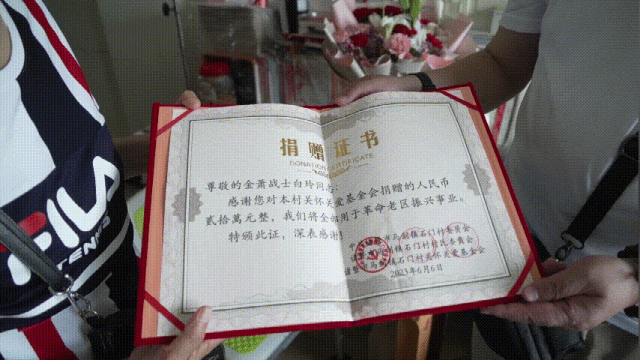 捐赠证书
DONATION CERTIFICATE
尊敬的金萧战士白玲同志:
感谢您对本村关怀关爱基金会捐赠的人民币
贰拾萬元整,我们将全部用于革命老区振兴事业。
特颁此证,深表感谢!
镇石门村村民委员会
镇石门村关怀关爱基金会
2023年6月6日
FILA
TENNIS